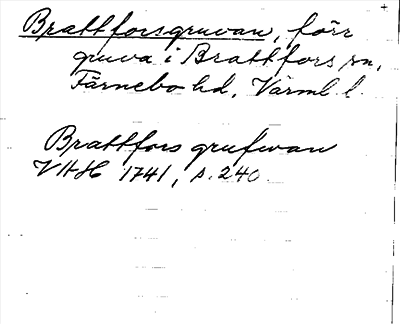 Brattforsgruvan, förr
gruva i Brattfors sn,
Färnebo hd, Värml. l.
Brattfors grufwan
VHH 1741, s. 240.